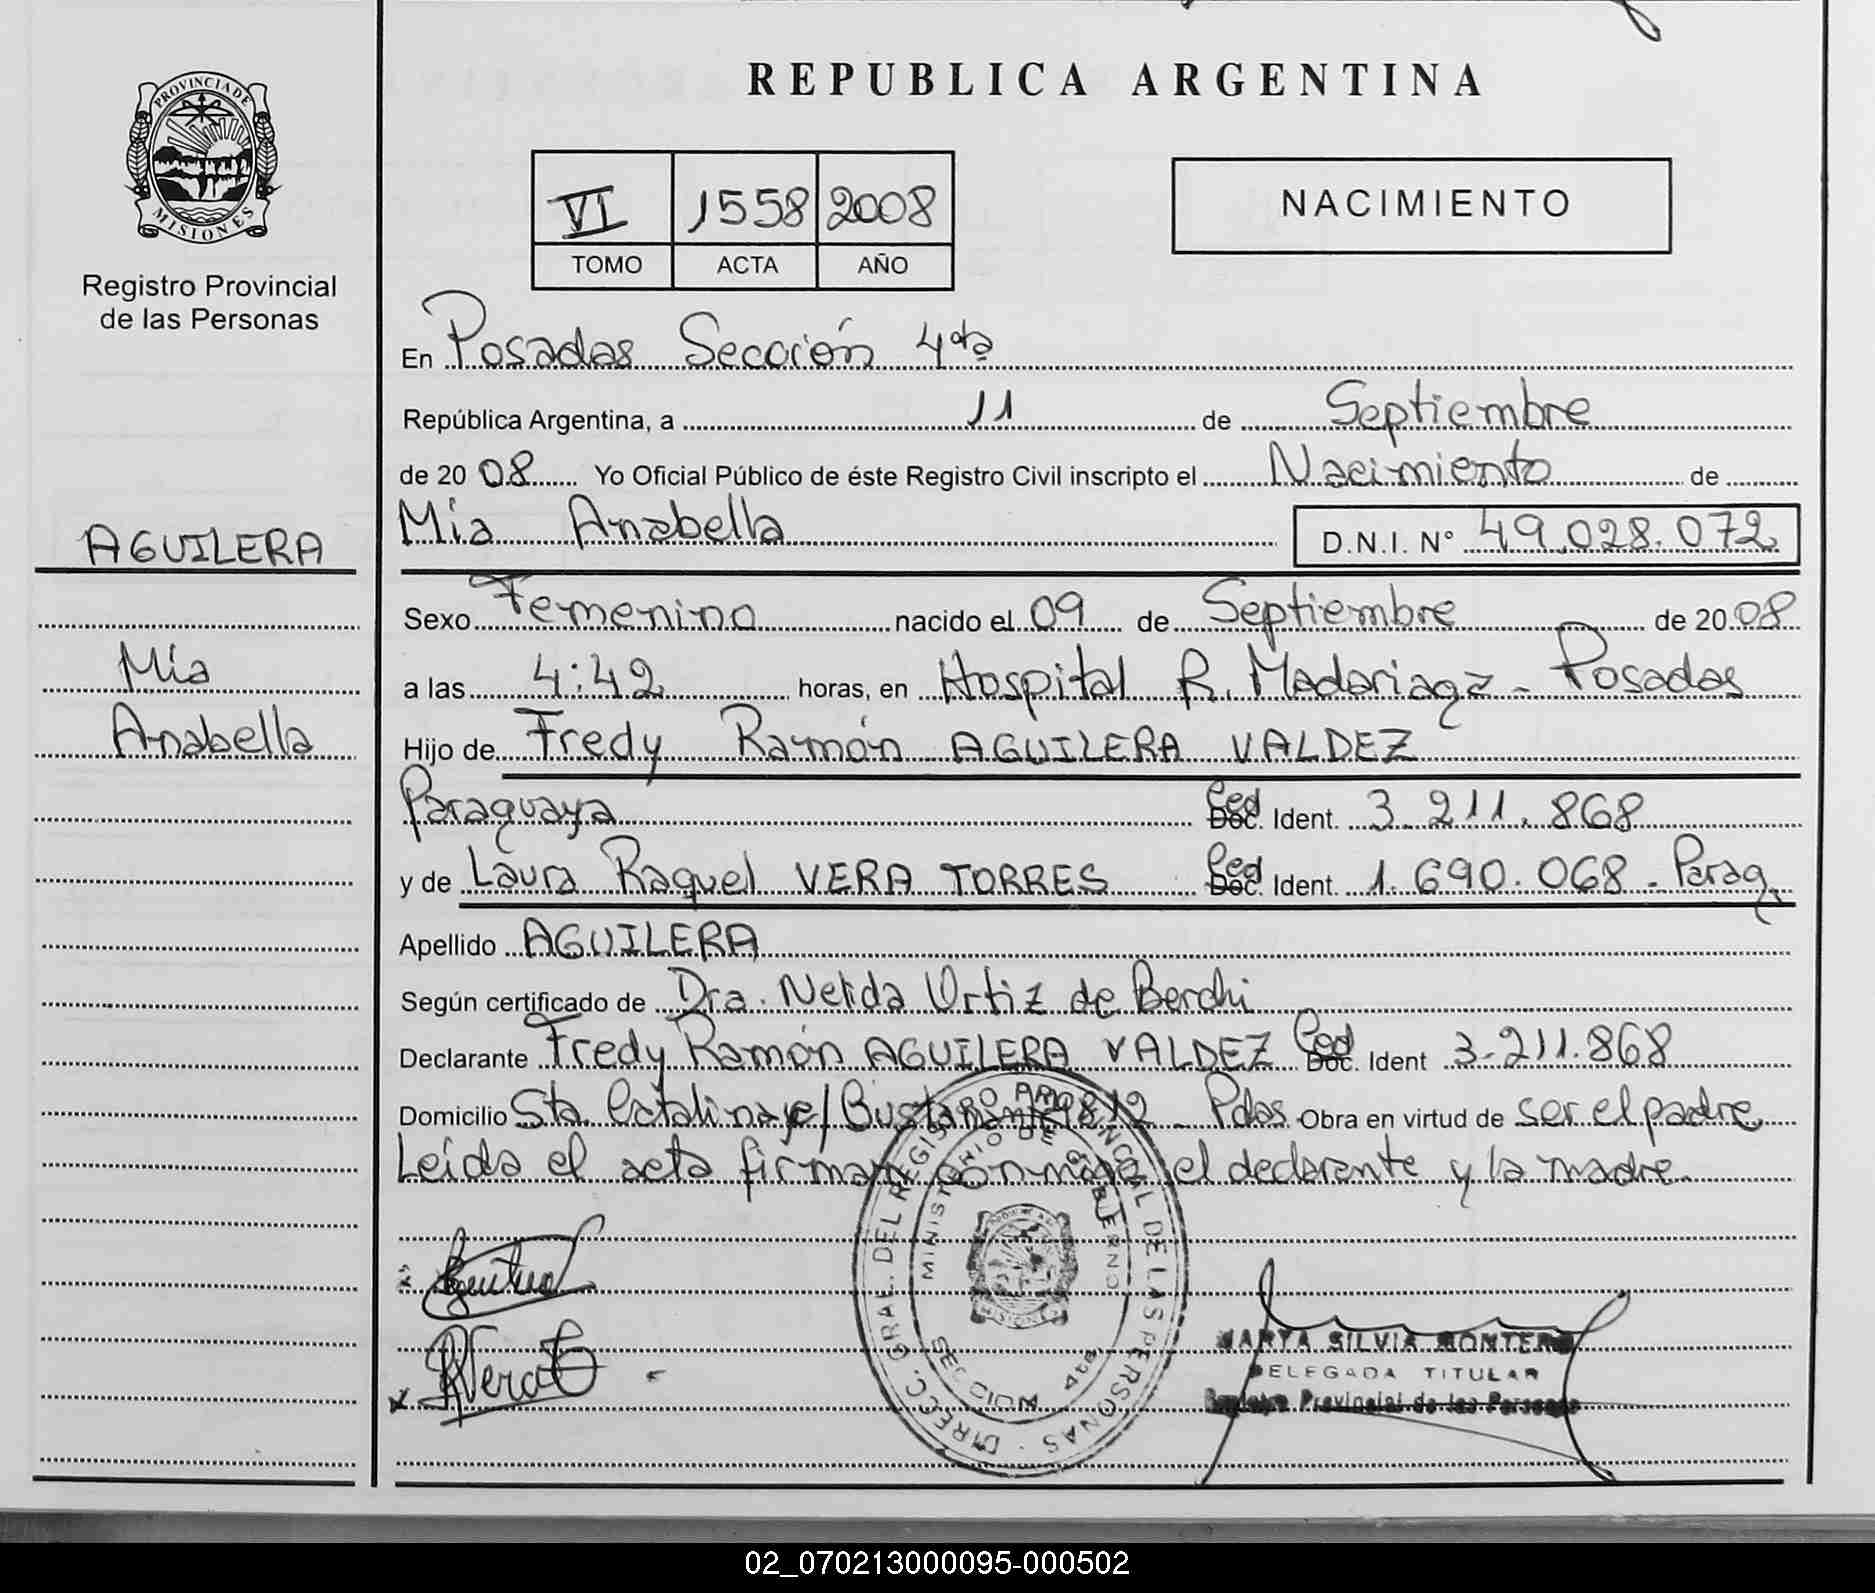 REPUBLICA ARGENTINA
PROVINCIA DE
MISIONES
Registro Provincial
de las Personas
VI 1558 2008
TOMO ACTA AÑO
NACIMIENTO
En Posadas Sección 4ta
República Argentina, a 11 de Septiembre
de 20 08 Yo Oficial Público de éste Registro Civil inscripto el Nacimiento de
AGUILERA
Mía Anabella D.N.I. N° 49.028.072
Sexo Femenino nacido el 09 de Septiembre de 20 08
Mía
a las 4:42 horas, en Hospital R. Madariaga - Posadas
Anabella
Hijo de Fredy Ramón AGUILERA VALDEZ
Paraguaya Ced Doc. Ident. 3.211.868
y de Laura Raquel VERA TORRES Ced Doc. Ident. 1.690.068 - Parag.
Apellido AGUILERA
Según certificado de Dra. Nelida Ortiz de Berchi
Declarante Fredy Ramón AGUILERA VALDEZ Ced Doc. Ident 3.211.868
Domicilio Sta. Catalina y c/ Bustamante 1872 - Pdas. Obra en virtud de ser el padre
Leída el acta firman conmigo el declarante y la madre.
DIRECC. GRAL. DEL REGISTRO PROVINCIAL DE LAS PERSONAS
MINISTERIO DE GOBIERNO
SECCION 4ta
MISIONES
MARTA SILVIA MONTERO
DELEGADA TITULAR
Registro Provincial de las Personas
02_070213000095-000502